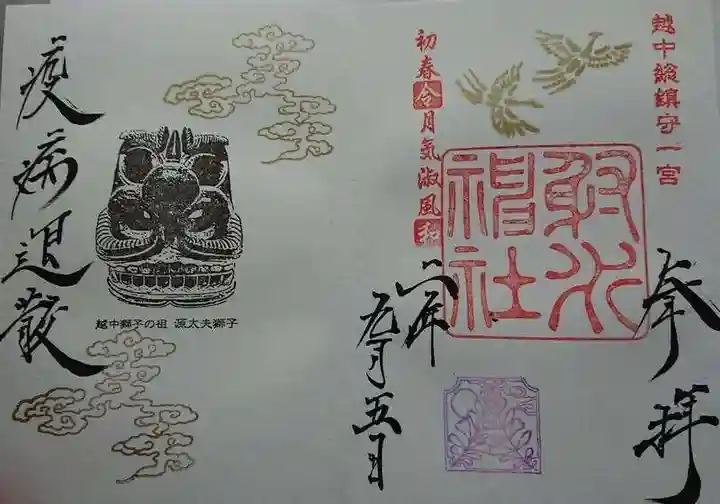 越中総鎮守一宮
奉拝
射水神社
初春令月氣淑風和
年
九月五日
越中獅子の祖 源太夫獅子
疫病退散